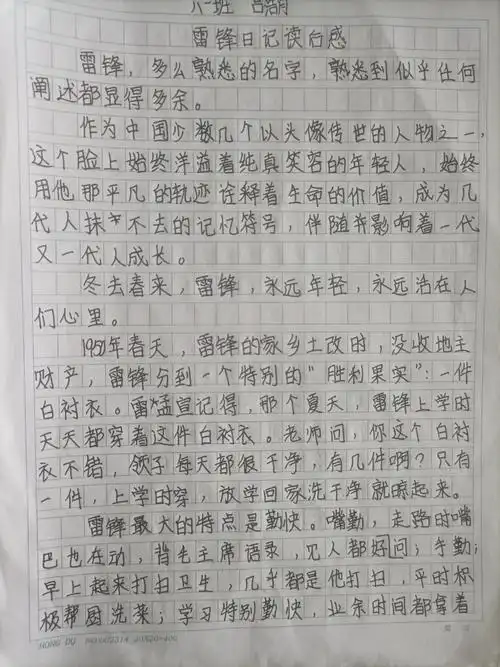 八一班 吕浩月
雷锋日记读后感
雷锋，多么熟悉的名字，熟悉到似乎任何
阐述都显得多余。
作为中国少数几个以头像传世的人物之一，
这个脸上始终洋溢着纯真笑容的年轻人，始终
用他那平凡的轨迹诠释着生命的价值，成为几
代人抹不去的记忆符号，伴随并影响着一代
又一代人成长。
冬去春来，雷锋，永远年轻，永远活在人
们心里。
1950年春天，雷锋的家乡土改时，没收地主
财产，雷锋分到一个特别的“胜利果实”：一件
白衬衣。雷孟宣记得，那个夏天，雷锋上学时
天天都穿着这件白衬衣。老师问，你这个白衬
衣不错，领子每天都很干净，有几件啊？只有
一件，上学时穿，放学回家洗干净就晾起来。
雷锋最大的特点是勤快。嘴勤，走路时嘴
巴也在动，背毛主席语录，见人都好问；手勤；
早上起来打扫卫生，几乎都是他打扫，平时积
极帮厨洗菜；学习特别勤快，业余时间都拿着